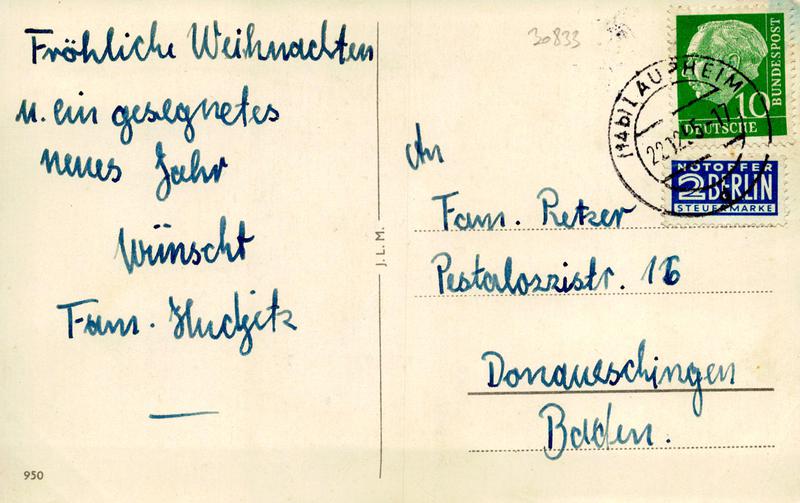 Fröhliche Weihnachten
u. ein gesegnetes
neues Jahr
Wünscht
Fam.
950
J.L.M.
30833
An
Fam. Retzer
Pestalozzistr. 16
Donaueschingen
Baden.
10
DEUTSCHE
BUNDESPOST
(14b) LAUPHEIM
22.12.55-17
NOTOPFER
2 BERLIN
STEUERMARKE